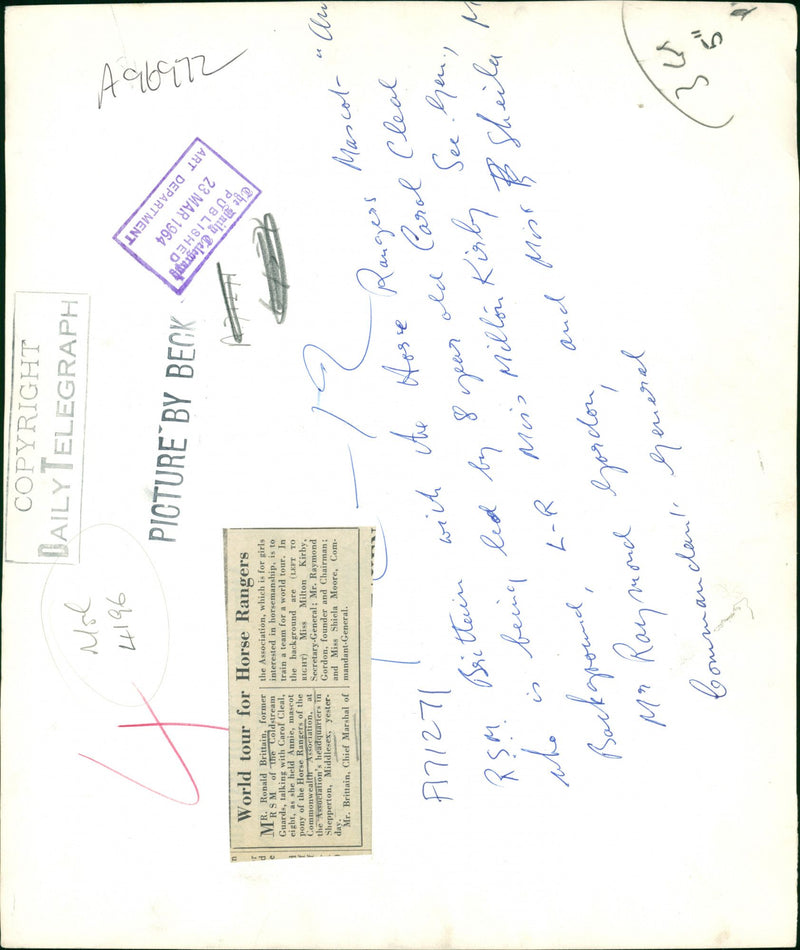 A96972
The Daily Telegraph
PUBLISHED
23 MAR 1964
ART DEPARTMENT
COPYRIGHT
DAILY TELEGRAPH
PICTURE BY BECK
4196
35
5"
World tour for Horse Rangers
MR. Ronald Brittain, former
RSM of the Coldstream
Guards, talking with Carol Cleal,
eight, as she held Annie, mascot
pony of the Horse Rangers of the
Commonwealth Association, at
the Association's headquarters in
Shepperton, Middlesex, yester-
day.
Mr. Brittain, Chief Marshal of
the Association, which is for girls
interested in horsemanship, is to
train a team for a world tour. In
the background are (LEFT TO
RIGHT) Miss Milton Kirby,
Secretary-General; Mr. Raymond
Gordon, founder and Chairman;
and Miss Shiela Moore, Com-
mandant-General.
F171271
R.S.M. Brittain with the Horse Rangers Mascot - "An
who is being led by 8 year old Carol Cleal
Background, L-R Miss Milton Kirby Sec. Gen,
Mr Raymond Gordon, and Miss Sheila M
Commandant General